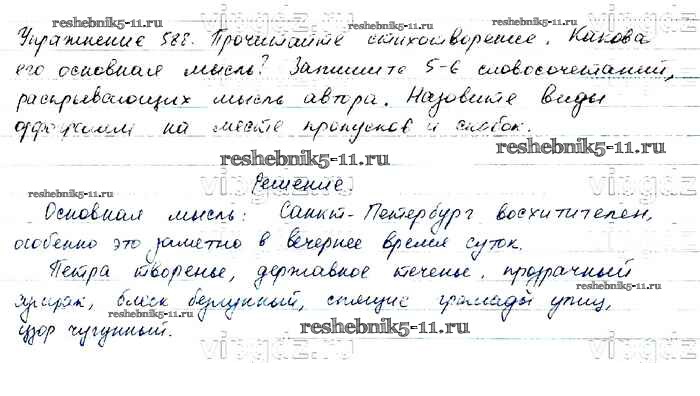 reshebnik5-11.ru
Упражнение 588. Прочитайте стихотворение. Какова
его основная мысль? Запишите 5-6 словосочетаний,
раскрывающих мысль автора. Назовите виды
орфограмм на месте пропусков и скобок.
reshebnik5-11.ru
reshebnik5-11.ru
Решение.
reshebnik5-11.ru
Основная мысль: Санкт-Петербург восхитителен,
особенно это заметно в вечернее время суток.
Петра творенье, державное теченье, прозрачный
сумрак, блеск безлунный, спящие громады улиц,
узор чугунный.
reshebnik5-11.ru
reshebnik5-11.ru